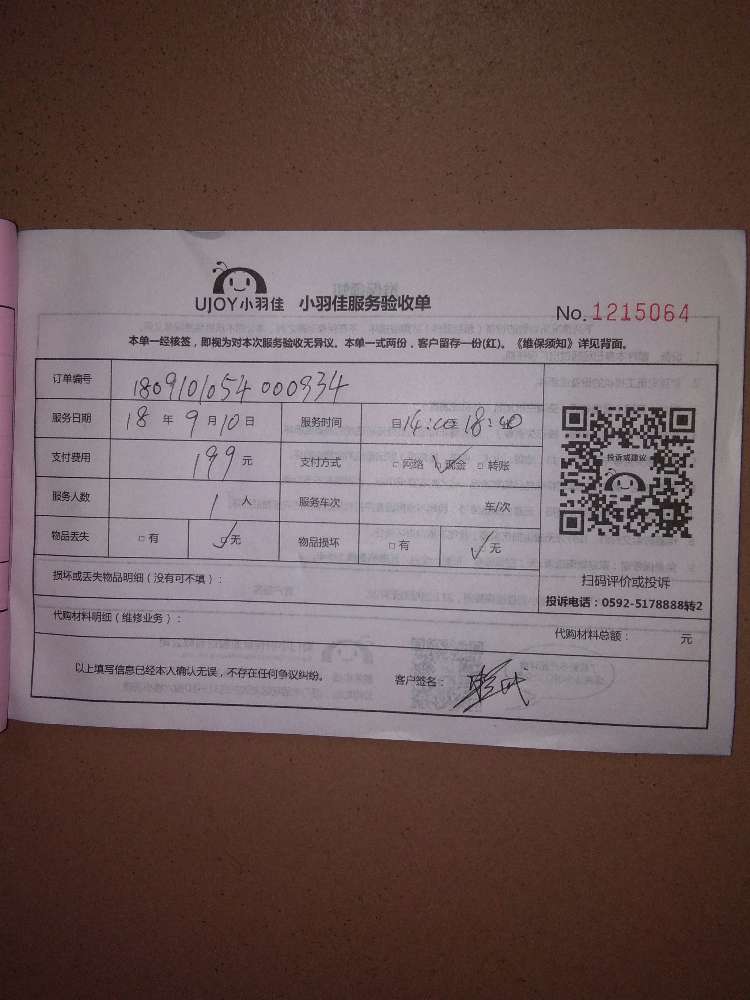 UJOY小羽佳 小羽佳服务验收单
No. 1215064
本单一经核签，即视为对本次服务验收无异议。本单一式两份，客户留存一份(红)。《维保须知》详见背面。
订单编号 1809101054000934
服务日期 18 年 9 月 10 日 服务时间 自14:00至18:00
支付费用 199 元 支付方式 □网络 □现金 □转账
服务人数 1 人 服务车次 车/次
物品丢失 □有 □无 物品损坏 □有 □无
投诉或建议
扫码评价或投诉
投诉电话：0592-5178888转2
损坏或丢失物品明细（没有可不填）：
代购材料明细（维修业务）：
代购材料总额： 元
以上填写信息已经本人确认无误，不存在任何争议纠纷。 客户签名：